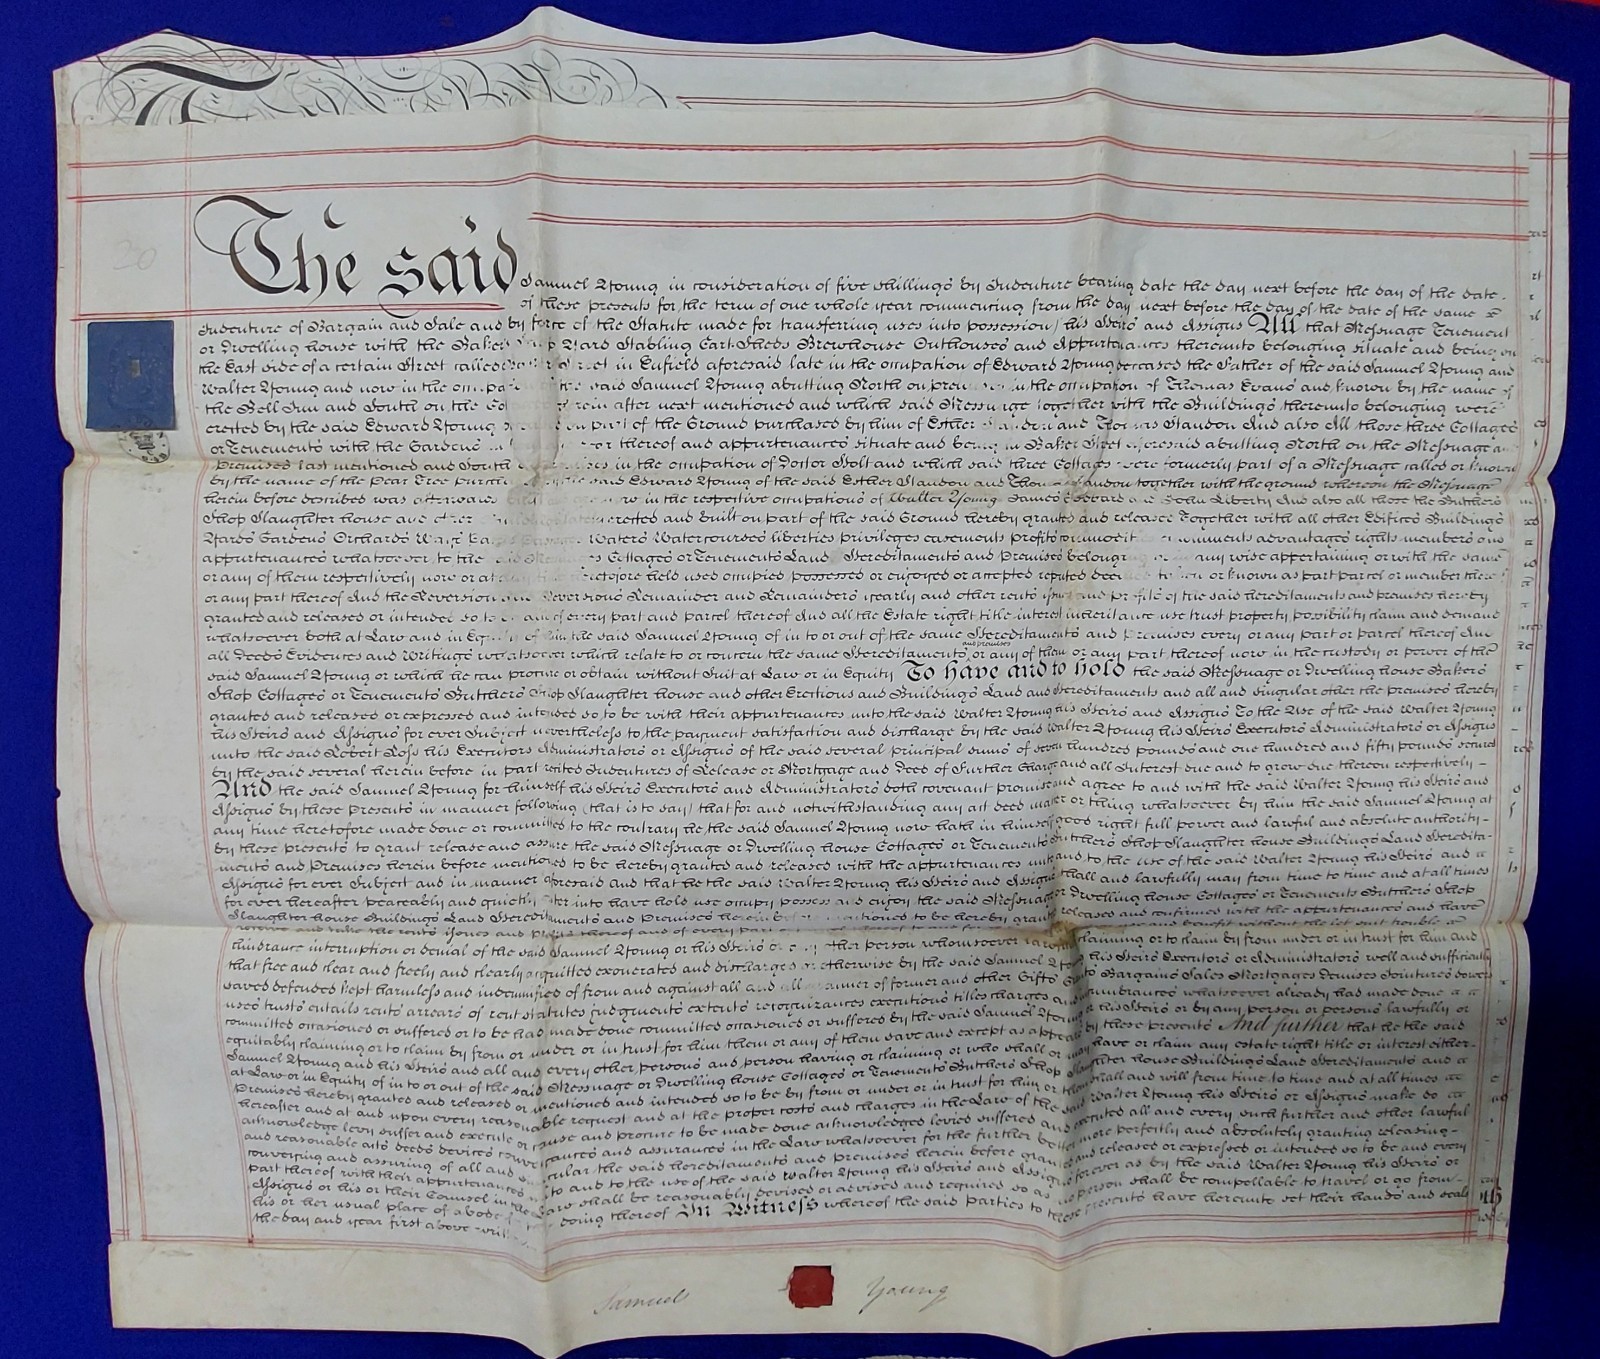 The said Samuel Young in consideration of five shillings by Indenture bearing date the day next before the day of the date
of these presents for the term of one whole year commencing from the day next before the day of the date of the same
Indenture of Bargain and Sale and by force of the Statute made for transferring uses into possession) his Heirs and Assigns All that Messuage Tenement
or Dwelling house with the Bakers Yard Stabling Cart Sheds Brewhouse Outhouses and Appurtances thereunto belonging situate and being on
the East side of a certain Street called in Enfield aforesaid late in the occupation of Edward Young deceased the Father of the said Samuel Young and
Walter Young and now in the the said Samuel Young abutting North on in the occupation of Thomas Evans and known by the name of
the Bell Inn and South on the herein after next mentioned and which said Messuage together with the Buildings thereunto belonging were
erected by the said Edward Young on part of the Ground purchased by him of Esther and Thomas Claudon And also All those three Cottages
or Tenements with the Gardens thereof and appurtenances situate and being in Baker Street aforesaid abutting North on the Messuage and
Premises last mentioned and South in the occupation of Holt and which said three Cottages were formerly part of a Messuage called or known
by the name of the Pear Tree the said Edward Young of the said Esther and together with the ground whereon the Messuage
herein before described was afterwards in the respective occupations of Walter Young James Edward and Liberty And also all those the Butchers
Shop Slaughter house and other erected and built on part of the said Ground hereby granted and released Together with all other Edifices Buildings
Yards Gardens Orchards Ways Waters Watercourses liberties privileges easements profits advantages rights members and
appurtenances whatsoever to the Cottages or Tenements Land Hereditaments and Premises belonging any wise appertaining or with the same
or any of them respectively now or at heretofore held used occupied possessed or enjoyed or accepted reputed or known as part parcel or member thereof
or any part thereof And the Reversion Reversions Remainder and Remainders yearly and other rents and profits of the said hereditaments and premises hereby
granted and released or intended so to of every part and parcel thereof And all the Estate right title interest inheritance use trust property possibility claim and demand
whatsoever both at Law and in Equity of him the said Samuel Young of in to or out of the same Hereditaments and Premises every or any part or parcel thereof And
all Deeds Evidences and Writings whatsoever which relate to or concern the same Hereditaments and premises or any of them or any part thereof now in the custody or power of the
said Samuel Young or which he can procure or obtain without Suit at Law or in Equity To have and to hold the said Messuage or Dwelling house Bakers
Shop Cottages or Tenements Butchers Shop Slaughter house and other Erections and Buildings Land and Hereditaments and all and singular other the premises hereby
granted and released or expressed and intended so to be with their appurtenances unto the said Walter Young his Heirs and Assigns To the Use of the said Walter Young
his Heirs and Assigns for ever Subject nevertheless to the payment satisfaction and discharge by the said Walter Young his Heirs Executors Administrators or Assigns
unto the said Robert Ross his Executors Administrators or Assigns of the said several principal sums of seven hundred pounds and one hundred and fifty pounds secured
by the said several herein before in part recited Indentures of Release or Mortgage and Deed of Further Charge and all Interest due and to grow due thereon respectively
And the said Samuel Young for himself his Heirs Executors and Administrators doth covenant promise and agree to and with the said Walter Young his Heirs and
Assigns by these presents in manner following (that is to say) that for and notwithstanding any act deed matter or thing whatsoever by him the said Samuel Young at
any time heretofore made done or committed to the contrary he the said Samuel Young now hath in himself good right full power and lawful and absolute authority
by these presents to grant release and assure the said Messuage or Dwelling house Cottages or Tenements Butchers Shop Slaughter house Buildings Land Heredita-
ments and Premises herein before mentioned to be hereby granted and released with the appurtenances unto and to the use of the said Walter Young his Heirs and
Assigns for ever Subject and in manner aforesaid and that he the said Walter Young his Heirs and Assigns shall and lawfully may from time to time and at all times
for ever hereafter peaceably and quietly enter into have hold use occupy possess and enjoy the said Messuage or Dwelling house Cottages or Tenements Butchers Shop
Slaughter house Buildings Land Hereditaments and Premises herein mentioned to be hereby granted released and confirmed with the appurtenances and have
receive and take the rents issues and profits thereof and of every part and benefit without the let suit trouble
hindrance interruption or denial of the said Samuel Young or his Heirs other person whomsoever claiming or to claim by from under or in trust for him and
that free and clear and freely and clearly acquitted exonerated and discharged or otherwise by the said Samuel Young his Heirs Executors or Administrators well and sufficiently
saved defended kept harmless and indemnified of from and against all and all manner of former and other Gifts Bargains Sales Mortgages Demises Jointures Dowers
uses trusts entails rents arrears of rent statutes judgments extents recognizances executions titles charges and incumbrances whatsoever already had made done
committed occasioned or suffered or to be had made done committed occasioned or suffered by the said Samuel Young or his Heirs or by any person or persons lawfully or
equitably claiming or to claim by from or under or in trust for him them or any of them save and except as by these presents And further that he the said
Samuel Young and his Heirs and all and every other persons and person having or claiming or who shall or may have or claim any estate right title or interest either
at Law or in Equity of in to or out of the said Messuage or Dwelling house Cottages or Tenements Butchers Shop Slaughter house Buildings Land Hereditaments and
Premises hereby granted and released or mentioned and intended so to be by from or under or in trust for him or them shall and will from time to time and at all times
hereafter and at and upon every reasonable request and at the proper costs and charges in the Law of the said Walter Young his Heirs or Assigns make do
acknowledge levy suffer and execute or cause and procure to be made done acknowledged levied suffered and executed all and every such further and other lawful
and reasonable acts deeds devices and assurances in the Law whatsoever for the further better more perfectly and absolutely granting releasing
conveying and assuring of all and the said hereditaments and Premises herein before granted and released or expressed or intended so to be and every
part thereof with their appurtenances to and to the use of the said Walter Young his Heirs and Assigns forever as by the said Walter Young his Heirs or
Assigns or his or their Counsel in the Law shall be reasonably devised or advised and required so as person shall be compellable to travel or go from
his or her usual place of abode doing thereof In Witness whereof the said Parties to these Presents have hereunto set their hands and seals
the day and year first above
Samuel Young